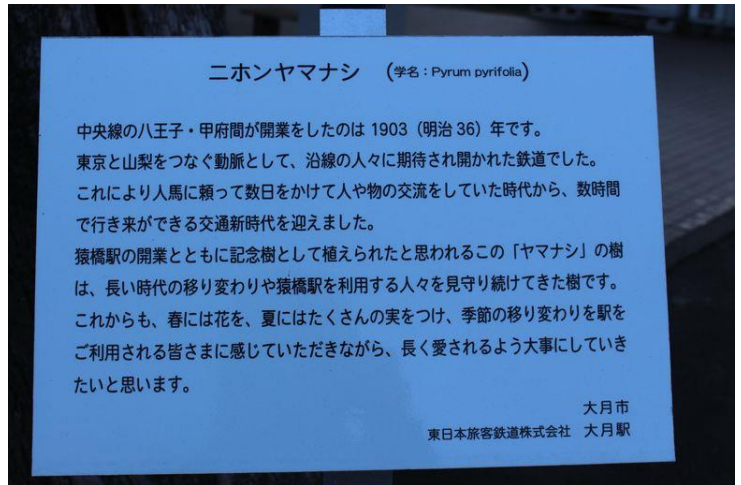 ニホンヤマナシ （学名：Pyrum pyrifolia）
中央線の八王子・甲府間が開業をしたのは 1903（明治 36）年です。
東京と山梨をつなぐ動脈として、沿線の人々に期待され開かれた鉄道でした。
これにより人馬に頼って数日をかけて人や物の交流をしていた時代から、数時間
で行き来ができる交通新時代を迎えました。
猿橋駅の開業とともに記念樹として植えられたと思われるこの「ヤマナシ」の樹
は、長い時代の移り変わりや猿橋駅を利用する人々を見守り続けてきた樹です。
これからも、春には花を、夏にはたくさんの実をつけ、季節の移り変わりを駅を
ご利用される皆さまに感じていただきながら、長く愛されるよう大事にしていき
たいと思います。
大月市
東日本旅客鉄道株式会社 大月駅